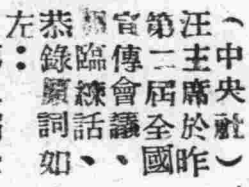 （中央社）
汪主席於昨
第二屆全國
宣傳會議、
臨練話、
恭錄願詞如
左：